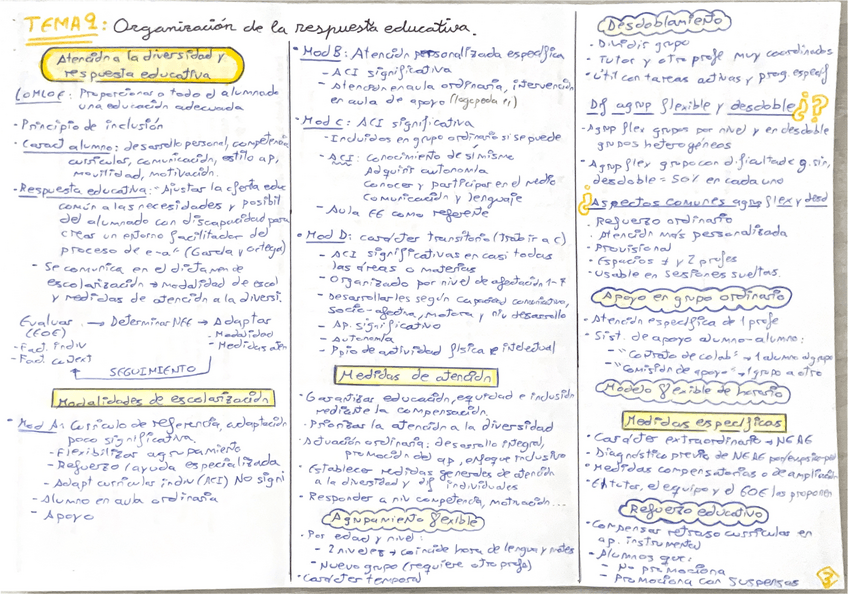 TEMA 9: Organización de la respuesta educativa.
Atención a la diversidad y
respuesta educativa
LOMLOE: Proporcionar a todo el alumnado
una educación adecuada
- Principio de inclusión
- Caract alumno: desarrollo personal, competencia
curricular, comunicación, estilo ap,
movilidad, motivación.
- Respuesta educativa: - Ajustar la oferta educ
común a las necesidades y posibil
del alumnado con discapacidad para
crear un entorno facilitador del
proceso de e-a" (García y Ortega)
- Se comunica en el dictamen de
escolarización → modalidad de escol
y medidas de atención a la diversi.
Evaluar → Determinar NEE → Adaptar
(EOE)
- Modalidad
- Fact. indiv
- Medidas aten
- Fact. context
SEGUIMIENTO
Modalidades de escolarización
• Mod A: Currículo de referencia, adaptación
poco significativa.
- Flexibilizar agrupamiento
- Refuerzo (ayuda especializada
- Adapt curricular indiv (ACI) NO signi
- Alumno en aula ordinaria
- Apoyo
• Mod B: Atención personalizada específica
- ACI significativa
- Atención en aula ordinaria, intervención
en aula de apoyo (logopeda
• Mod C: ACI significativa
- Incluidos en grupo ordinario si se puede
- ACI: Conocimiento de sí mismo
Adquirir autonomía
Conocer y participar en el medio
Comunicación y lenguaje
- Aula EE como referente
• Mod D: carácter transitorio (
- ACI significativas en casi todas
las áreas o materias
- Organizado por nivel de afectación 1-7
- Desarrollarles según capacidad comunicativa,
socio-afectiva, motora y niv desarrollo
- Ap. significativo
- Autonomía
- Ppio de actividad física e intelectual
Medidas de atención
• Garantizar educación, equidad e inclusión
mediante la compensación.
- Priorizar la atención a la diversidad
- Actuación ordinaria: desarrollo integral,
promoción del ap, enfoque inclusivo
- Establecer medidas generales de atención
a la diversidad y dif individuales
- Responder a niv competencia, motivación...
Agrupamiento flexible
• Por edad y nivel:
- 2 niveles → coincide hora de lengua y mates
- Nuevo grupo (requiere otro profe)
• Carácter temporal
Desdoblamiento
• Dividir grupo
• Tutor y otro profe muy coordinados
• Útil con tareas activas y prog. específ
Dif agrup flexible y desdoble ¿?
- Agrup flex grupos por nivel y en desdoble
grupos heterogéneos
• Agrup flex grupo con dificultad
desdoble = 50% en cada uno
¿Aspectos comunes agrup flex y desd
. Refuerzo ordinario
. Atención más personalizada
- Provisional
- Espacios ≠ y 2 profes
- Usable en sesiones sueltas.
Apoyo en grupo ordinario
- Atención específica de 1 profe
- Sist. de apoyo alumno-alumno:
- "Contrato de colab" → 1 alumno a grupo
- "Comisión de apoyo" → 1 grupo a otro
Modelo flexible de horario
Medidas específicas
• Carácter extraordinario → NEAE
- Diagnóstico previo de NEAE
• Medidas compensatorias o de ampliación
• El tutor, el equipo y el EOE las proponen
Refuerzo educativo
- Compensar retraso curricular en
ap. instrumental
- Alumnos que:
- No promociona
- Promociona con suspensos
3